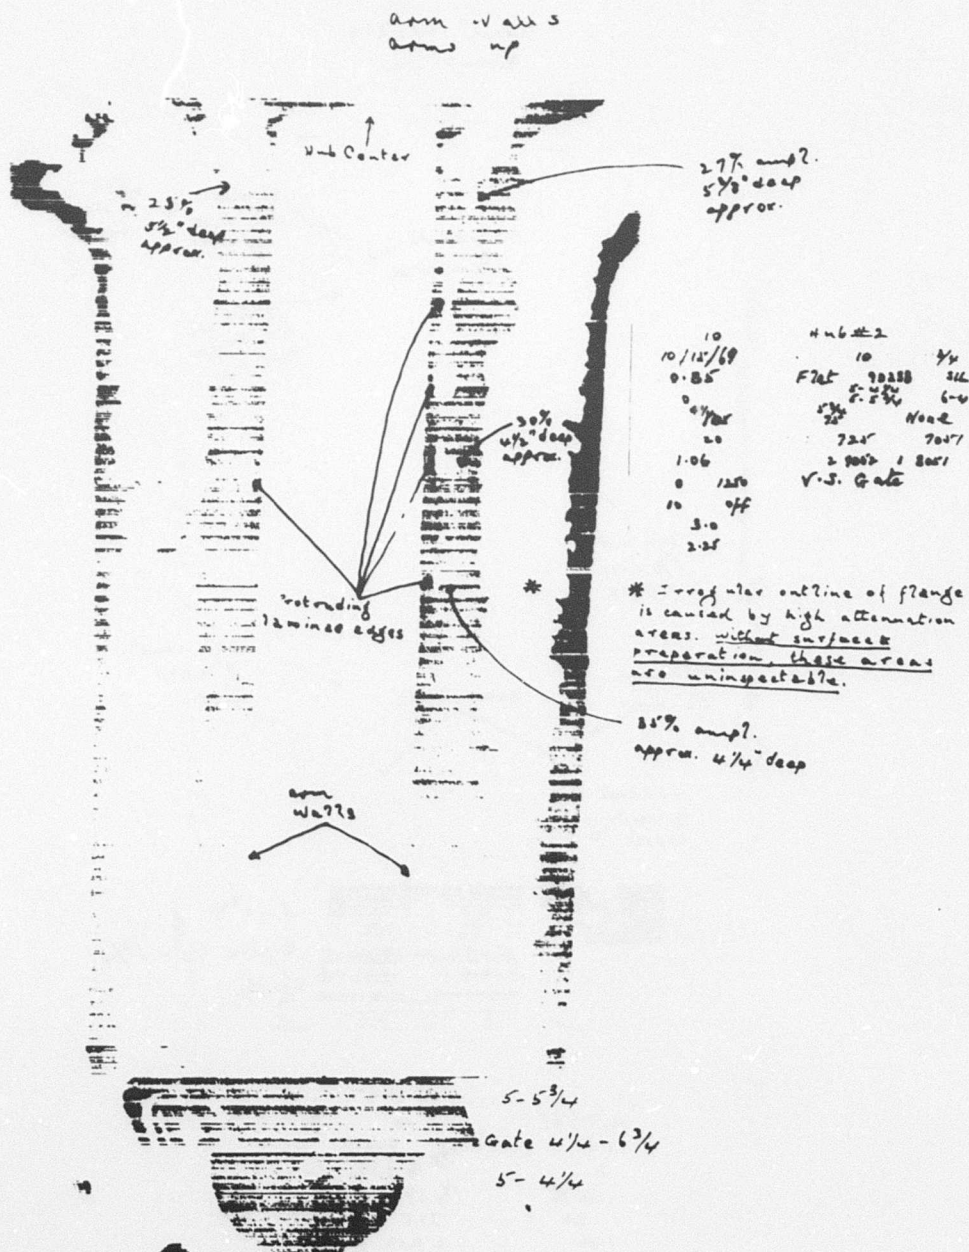 arm walls
arms up
Hub Center
27% ampl.
5 5/8" deep
approx.
5 1/2" deep
approx.
10
10/15/69
0.85
0
20
1.06
0 1250
10 off
3.0
2.25
Hub #2
10 3/4
Flat
None
V.S. Gate
30%
4 1/2" deep
approx.
Protruding
laminae edges
* Irregular outline of flange
is caused by high attenuation
areas. Without surface
preparation, these areas
are uninspectable.
*
35% ampl.
approx. 4 1/4" deep
arm
walls
5 - 5 3/4
Gate 4 1/4 - 6 3/4
5 - 4 1/4